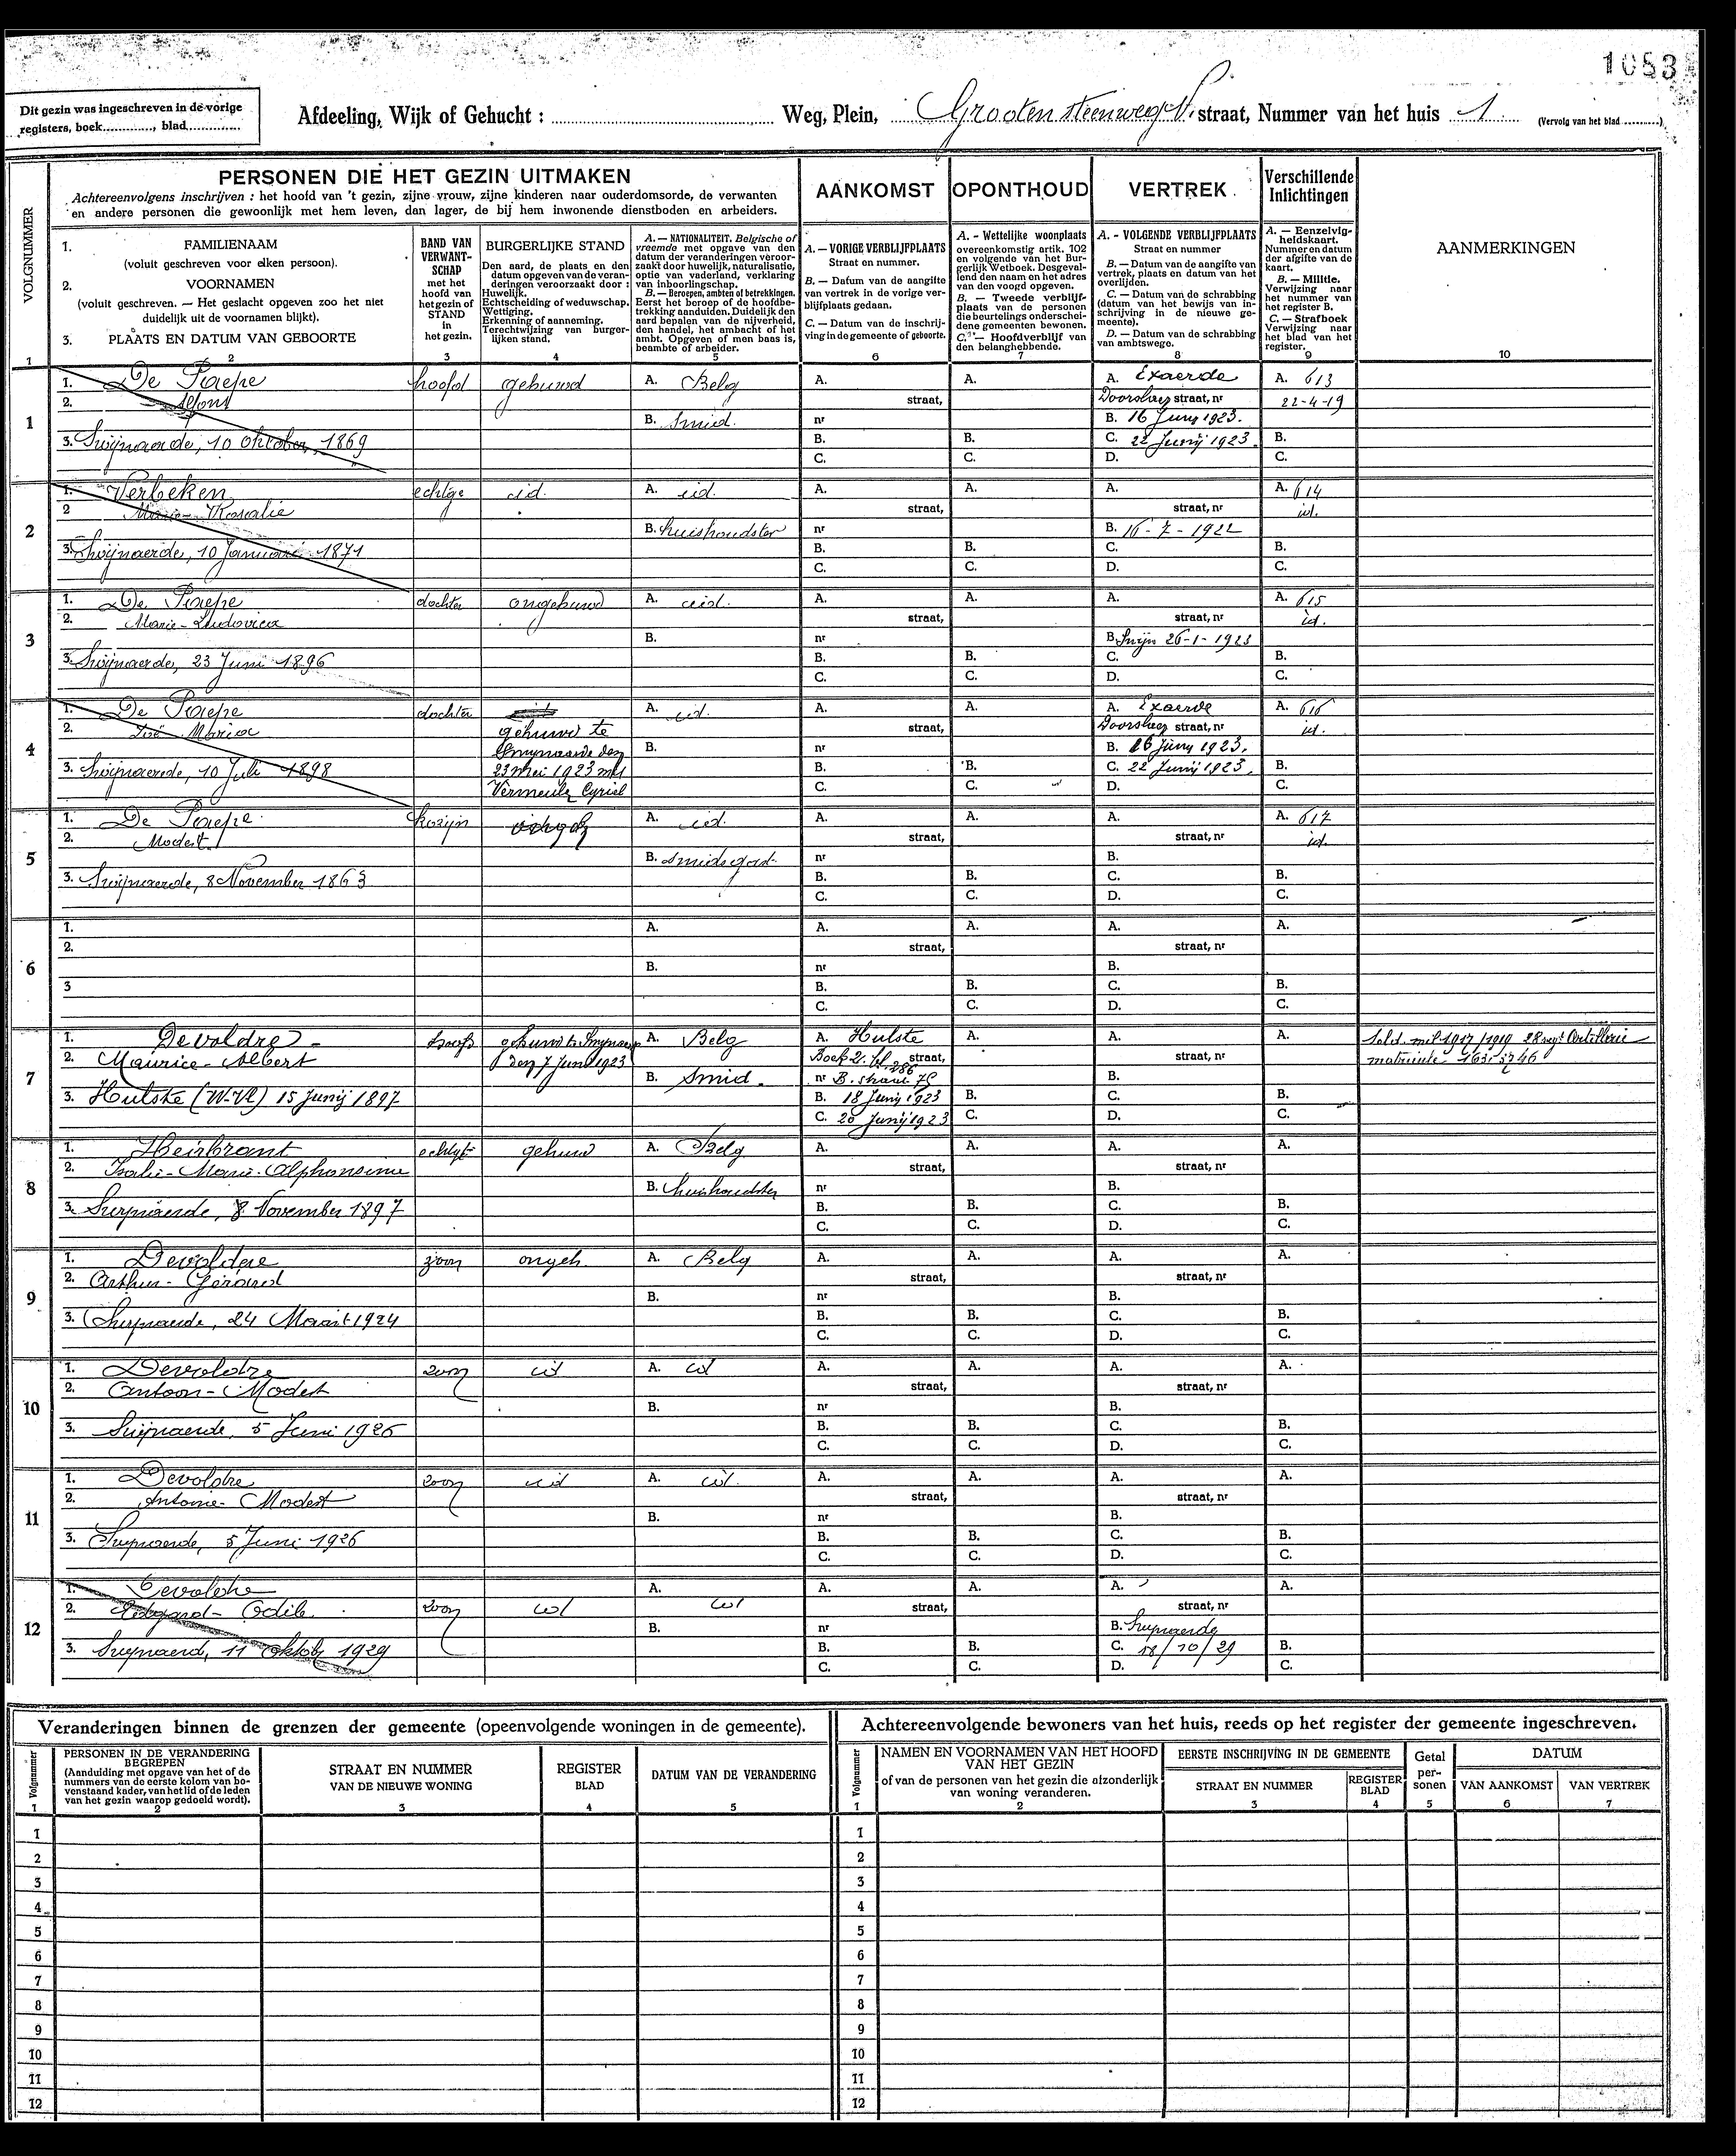 1083
Dit gezin was ingeschreven in de vorige
registers, boek............, blad.............
Afdeeling, Wijk of Gehucht : ........................ Weg, Plein, Grooten steenweg N. straat, Nummer van het huis 1 (Vervolg van het blad ..........)
VOLGNUMMER
PERSONEN DIE HET GEZIN UITMAKEN
Achtereenvolgens inschrijven : het hoofd van 't gezin, zijne vrouw, zijne kinderen naar ouderdomsorde, de verwanten
en andere personen die gewoonlijk met hem leven, dan lager, de bij hem inwonende dienstboden en arbeiders.
AANKOMST
OPONTHOUD
VERTREK
Verschillende
Inlichtingen
1. FAMILIENAAM
(voluit geschreven voor elken persoon).
2. VOORNAMEN
(voluit geschreven. — Het geslacht opgeven zoo het niet
duidelijk uit de voornamen blijkt).
3. PLAATS EN DATUM VAN GEBOORTE
BAND VAN
VERWANT-
SCHAP
met het
hoofd van
het gezin of
STAND
in
het gezin.
BURGERLIJKE STAND
Den aard, de plaats en den
datum opgeven van de veran-
deringen veroorzaakt door :
Huwelijk.
Echtscheiding of weduwschap.
Wettiging.
Erkenning of aanneming.
Terechtwijzing van burger-
lijken stand.
A. — NATIONALITEIT. Belgische of
vreemde met opgave van den
datum der veranderingen veroor-
zaakt door huwelijk, naturalisatie,
optie van vaderland, verklaring
van inboorlingschap.
B. — Beroepen, ambten of betrekkingen.
Eerst het beroep of de hoofdbe-
trekking aanduiden. Duidelijk den
aard bepalen van de nijverheid,
den handel, het ambacht of het
ambt. Opgeven of men baas is,
beambte of arbeider.
A. — VORIGE VERBLIJFPLAATS
Straat en nummer.
B. — Datum van de aangifte
van vertrek in de vorige ver-
blijfplaats gedaan.
C. — Datum van de inschrij-
ving in de gemeente of geboorte.
A. - Wettelijke woonplaats
overeenkomstig artik. 102
en volgende van het Bur-
gerlijk Wetboek. Desgeval-
lend den naam en het adres
van den voogd opgeven.
B. — Tweede verblijf-
plaats van de personen
die beurtelings onderschei-
dene gemeenten bewonen.
C. — Hoofdverblijf van
den belanghebbende.
A. - VOLGENDE VERBLIJFPLAATS
Straat en nummer
B. — Datum van de aangifte van
vertrek, plaats en datum van het
overlijden.
C. — Datum van de schrabbing
(datum van het bewijs van in-
schrijving in de nieuwe ge-
meente).
D. — Datum van de schrabbing
van ambtswege.
A. — Eenzelvig-
heidskaart.
Nummer en datum
der afgifte van de
kaart.
B. — Militie.
Verwijzing naar
het nummer van
het register B.
C. — Strafboek
Verwijzing naar
het blad van het
register.
AANMERKINGEN
1 2 3 4 5 6 7 8 9 10
1
1. De Paepe hoofd gehuwd A. Belg A. A. A. Exaerde A. 613
2. Alfons straat, Doorslaer straat, nr 22-4-19
B. Smid. nr B. 16 Juny 1923.
3. Swijnaerde, 10 Oktober, 1869 B. B. C. 22 Junij 1923. B.
C. C. D. C.
2
1. Verbeken echtge id. A. id. A. A. A. A. 614
2 Marie-Rosalie straat, straat, nr id.
B. huishoudster nr B. 16 - 7 - 1922
3. Swijnaerde, 10 Januari 1871 B. B. C. B.
C. C. D. C.
3
1. De Paepe dochter ongehuwd A. id. A. A. A. A. 615
2. Marie-Ludovica straat, straat, nr id.
B. nr B. Swijn 26-1-1923
3. Swijnaerde, 23 Juni 1896 B. B. C. B.
C. C. D. C.
4
1. De Paepe dochter A. id. A. A. A. Exaerde A. 616
2. Maria gehuwd te straat, Doorslaer straat, nr id.
Swynaarde den B. nr B. 16 juny 1923.
3. Swijnaerde, 10 Juli 1898 23 mei 1923 met B. B. C. 22 Junij 1923. B.
Vermeule Cyriel C. C. D. C.
5
1. De Paepe kozijn A. id. A. A. A. A. 617
2. Modest. straat, straat, nr id.
B. Smidsgast. nr B.
3. Swijnaerde, 8 November 1863 B. B. C. B.
C. C. D. C.
6
1. A. A. A. A. A.
2. straat, straat, nr
B. nr B.
3 B. B. C. B.
C. C. D. C.
7
1. Devoldre hoofd gehuwd te Swynaer A. Belg A. Hulste A. A. A. Sold. mil 1917/1919 2e regt Artillerie
2. Maurice-Albert den 7 Juni 1923 Boek 2. bl. 286 straat, straat, nr matricule
B. Smid. nr B.
3. Hulste (W-Vl) 15 Junij 1897 B. 18 Junij 1923 B. C. B.
C. 20 Junij 1923 C. D. C.
8
1. Heirbrant echtge gehuwd A. Belg A. A. A. A.
2. Marie-Alphonsine straat, straat, nr
B. huishoudster nr B.
3. Swynaerde, 8 November 1897 B. B. C. B.
C. C. D. C.
9
1. Devoldre zoon ongeh. A. Belg A. A. A. A.
2. Arthur-Gérard straat, straat, nr
B. nr B.
3. Swynaerde, 24 Maart 1924 B. B. C. B.
C. C. D. C.
10
1. Devoldre zoon id A. id A. A. A. A.
2. Antoon-Modest straat, straat, nr
B. nr B.
3. Swijnaerde, 5 Juni 1926 B. B. C. B.
C. C. D. C.
11
1. Devoldre zoon id A. id. A. A. A. A.
2. Antoine-Modest straat, straat, nr
B. nr B.
3. Swynaerde, 5 Juni 1926 B. B. C. B.
C. C. D. C.
12
1. Devoldre A. A. A. A. A.
2. Edgard-Odile zoon id id straat, straat, nr
B. nr B. Swynaerde
3. Swynaerd, 11 Oktob 1929 B. B. C. 18/10/29 B.
C. C. D. C.
Veranderingen binnen de grenzen der gemeente (opeenvolgende woningen in de gemeente).
Volgnummer
PERSONEN IN DE VERANDERING
BEGREPEN
(Aanduiding met opgave van het of de
nummers van de eerste kolom van bo-
venstaand kader, van het lid of de leden
van het gezin waarop gedoeld wordt).
STRAAT EN NUMMER
VAN DE NIEUWE WONING
REGISTER
BLAD
DATUM VAN DE VERANDERING
1 2 3 4 5
1
2
3
4
5
6
7
8
9
10
11
12
Achtereenvolgende bewoners van het huis, reeds op het register der gemeente ingeschreven.
Volgnummer
NAMEN EN VOORNAMEN VAN HET HOOFD
VAN HET GEZIN
of van de personen van het gezin die afzonderlijk
van woning veranderen.
EERSTE INSCHRIJVING IN DE GEMEENTE
STRAAT EN NUMMER
REGISTER
BLAD
Getal
per-
sonen
DATUM
VAN AANKOMST VAN VERTREK
1 2 3 4 5 6 7
1
2
3
4
5
6
7
8
9
10
11
12